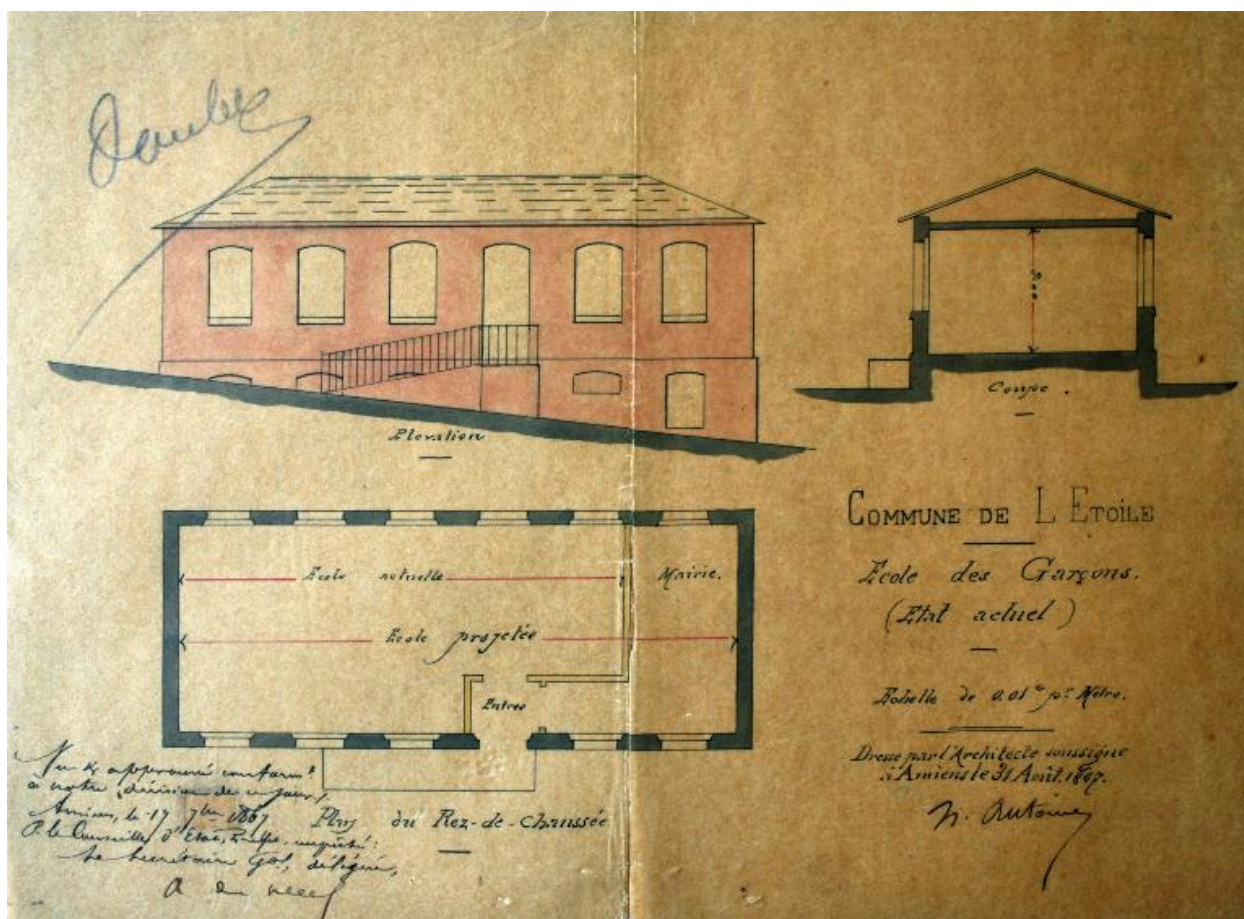 Elevation
Coupe.
COMMUNE DE L ETOILE
Ecole des Garçons.
(Etat actuel)
Echelle de 0.01ᶜ pʳ Mètre.
Dressé par l'Architecte soussigné
à Amiens le 31 Août, 1867.
Ecole actuelle
Mairie.
Ecole projetée
Entrée
Plan du Rez-de-Chaussée
Vu & approuvé conformᵗ
à notre décision de ce jour,
Amiens, le 17 7bre 1867
P. le Conseiller d'Etat, Préfet,
Le Secrétaire Gal, délégué,